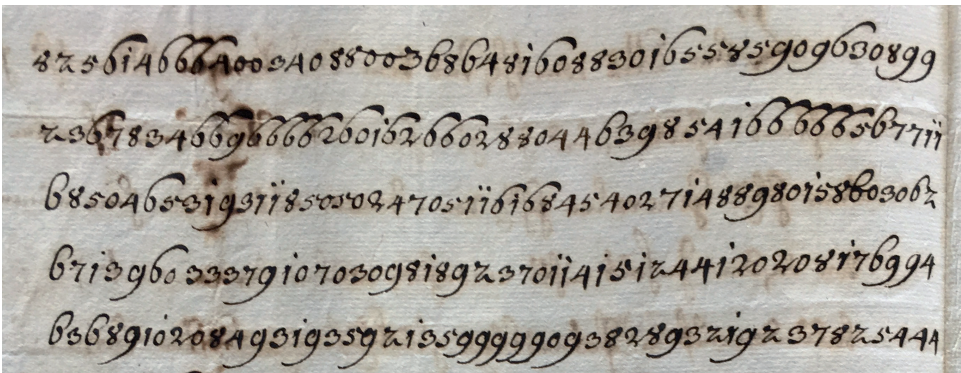 8256146664003408800368648160883016558590963089 9
236783466966662601626602880446398541666665677 11
68504653193118505024705116168454027148898015860306 2
6713960333791070309818923701141512441202081769 94
63689102084931935921359999909382893219237825444